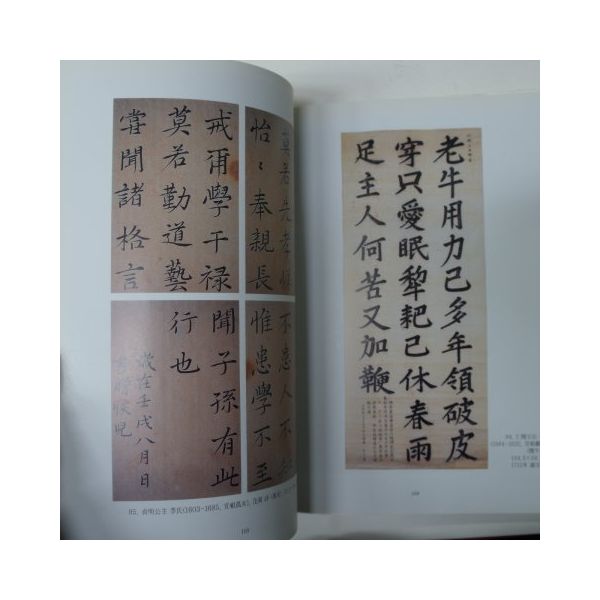 老牛用力已多年領破皮
穿只愛眠犂耙已休春雨
足主人何苦又加鞭
莫若先孝悌
怡〻奉親長
戒爾學干禄
莫若勤道藝
嘗聞諸格言
不患人不
惟患學不至
聞子孫有此
行也
歲在壬戌八月日
85. 貞明公主 李氏(1603-1685,